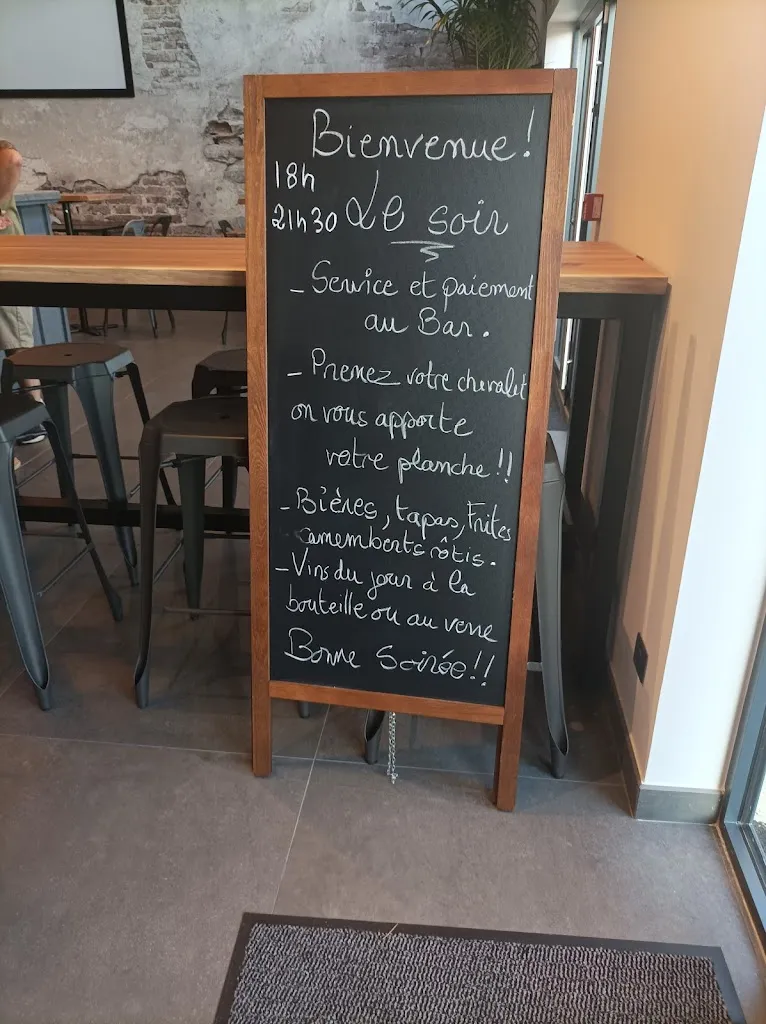 Bienvenue!
18h
21h30 Le soir
- Service et paiement
au Bar.
- Prenez votre chevalet
on vous apporte
votre planche !!
- Bières, tapas, Frites
camemberts rôtis.
- Vins du jour à la
bouteille ou au verre
Bonne Soirée!!